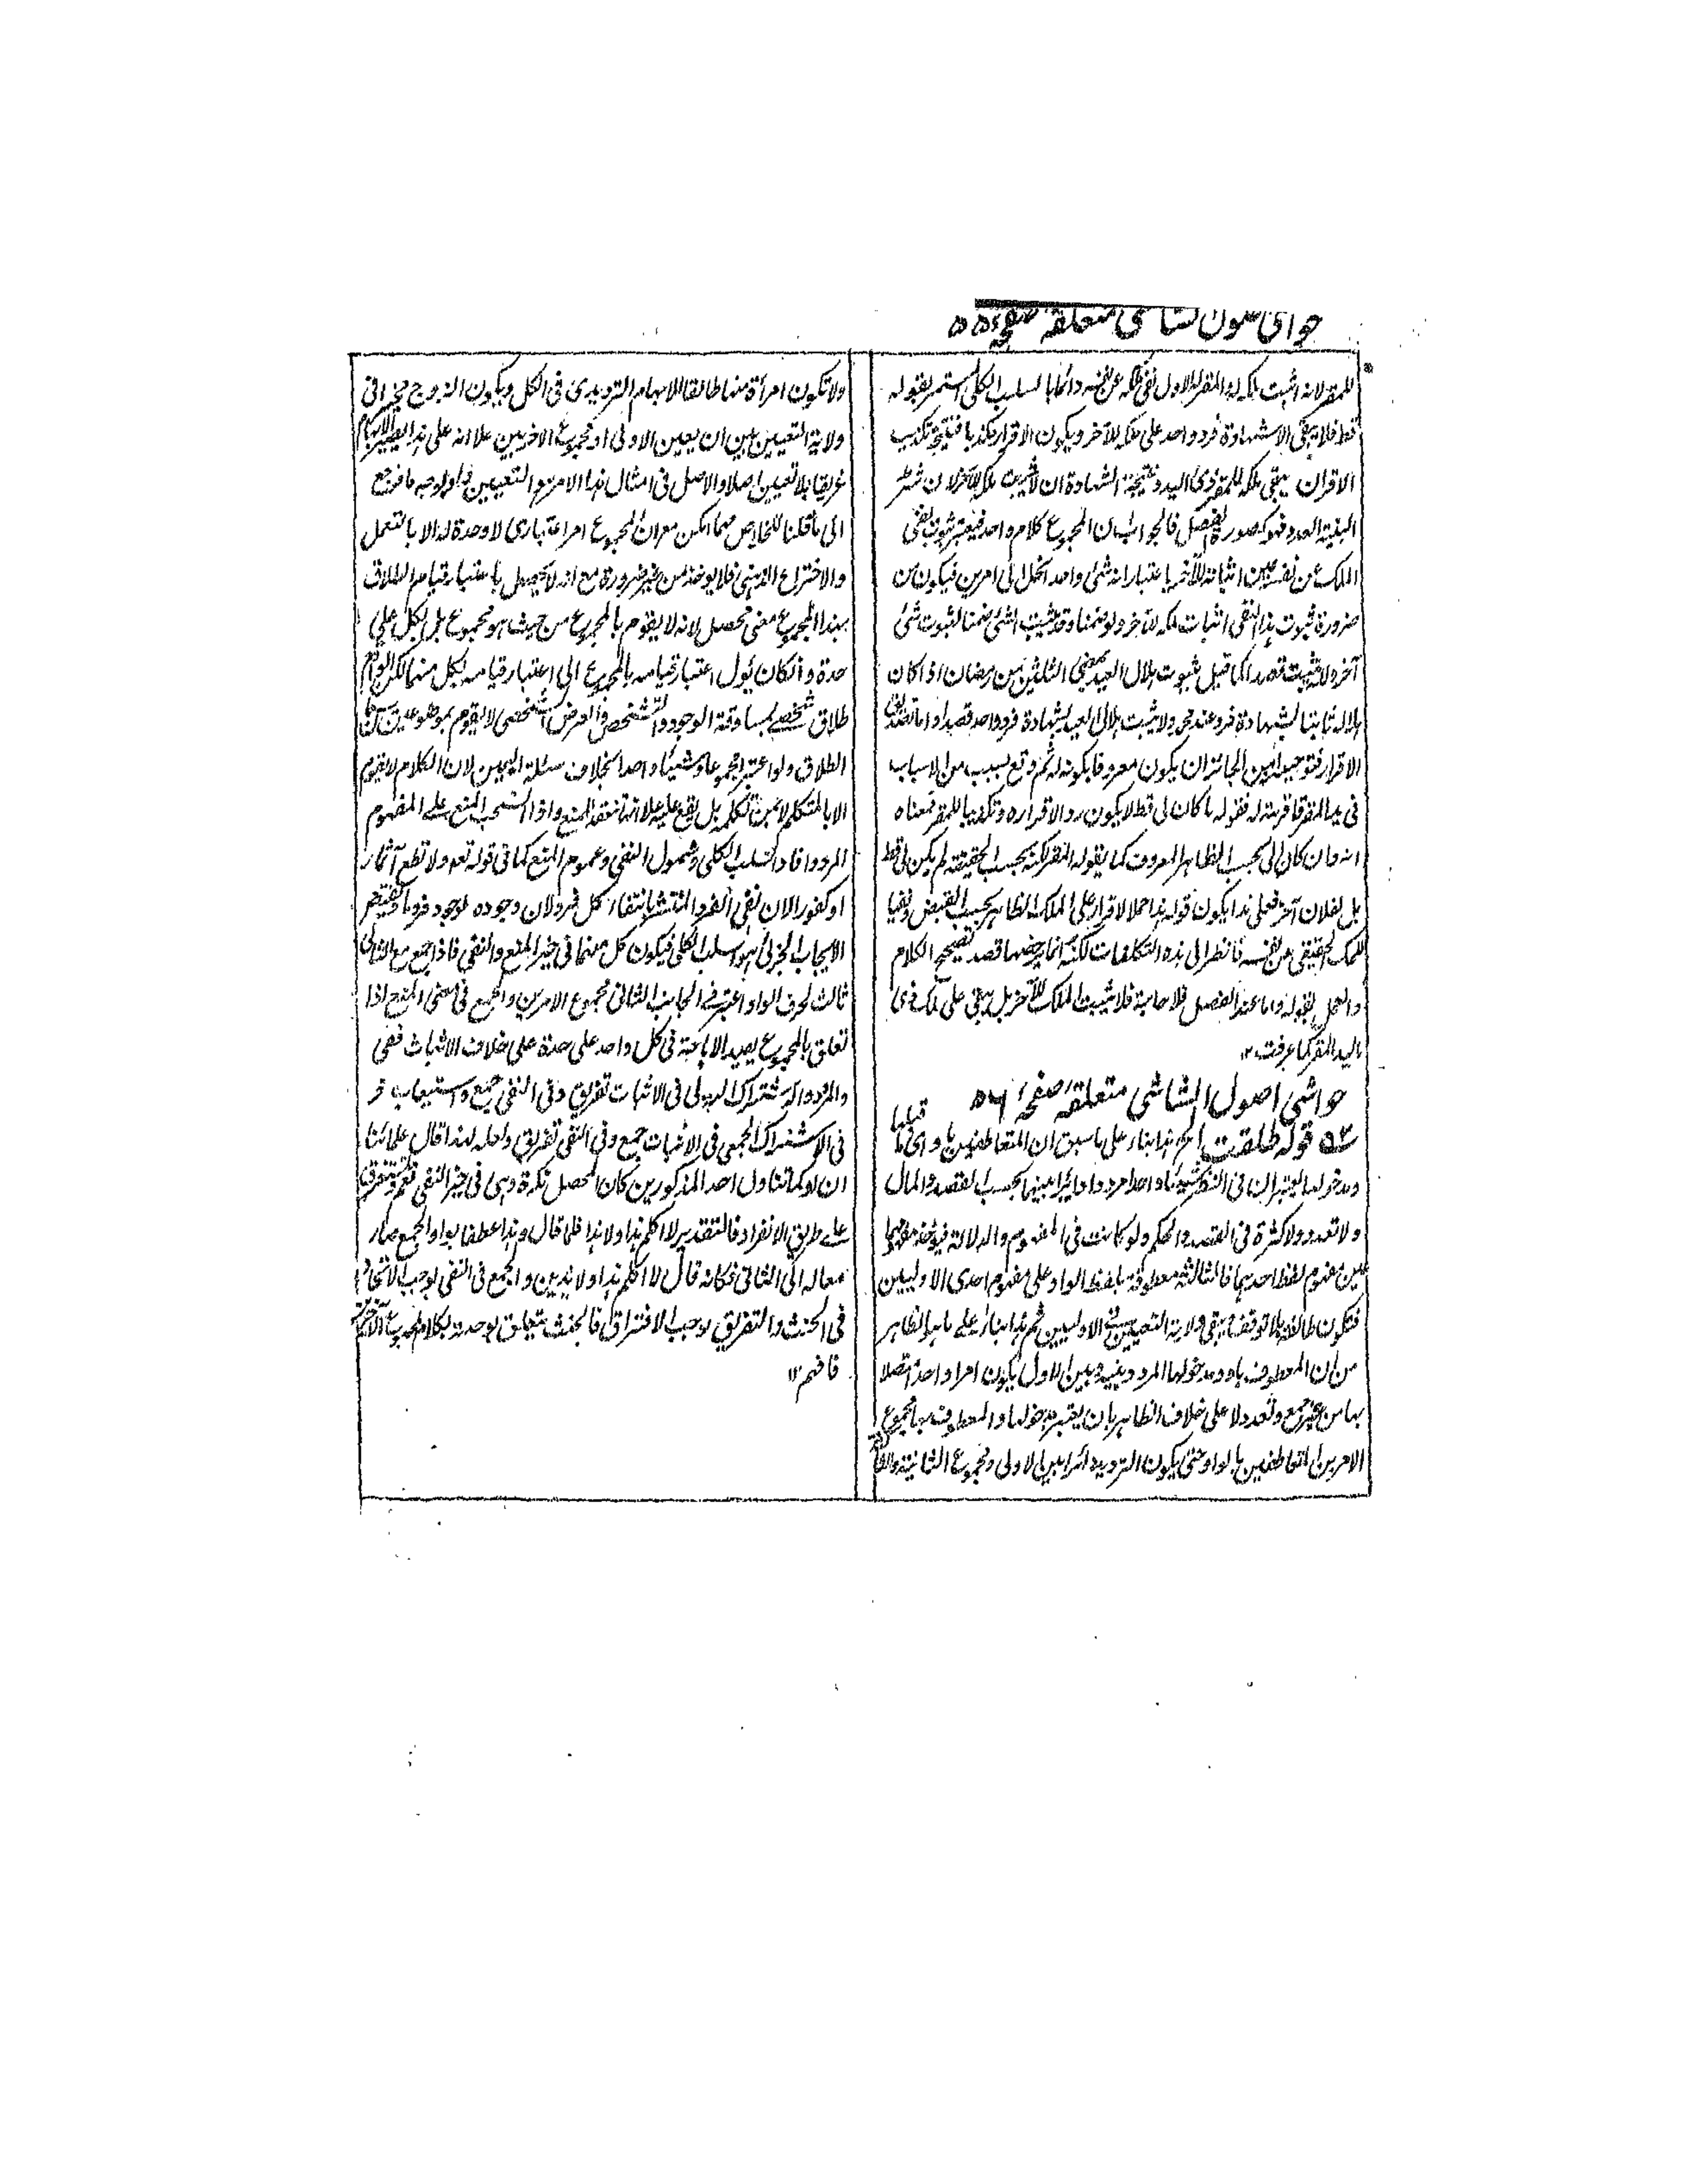 حواشی اصول الشاشی متعلقہ صفحہ ۵۵
للمقر لانہ اثبت ملکہ لہ والمقر لہ الاول نفی ملکہ عن نفسہ دائما بالسلب الکلی المستمر بقولہ
قط فلا یبقی الا شہادة فرد واحد علی ملکہ للآخر ویکون الاقرار مکذبا فنتیجة تکذیب
الاقران یبقی ملکہ للمقر ذی الید ونتیجة الشہادة ان لا یثبت ملکہ للآخر لان شرط
البینة العدد فہو کصورة الفصل فالجواب ان المجموع کلام واحد فیعتبر ثبوت نفی
الملک عن نفسہ حین اثباتہ للآخر باعتبار انہ شئ واحد انحل الی امرین فیکون من
ضرورة ثبوت ہذا النفی اثبات ملکہ للآخر ولو ضمنا وقد یثبت الشئ ضمنا لثبوت شئ
آخر ولا یثبت قصدا کما قیل بثبوت ہلال العید بمضی الثلاثین من رمضان اذا کان
ہلالہ ثابتا بشہادة فرد عند محمد ولا یثبت ہلال العید بشہادة فرد واحد قصدا واما تصدیق
الاقرار فتوجیہہ ان من الجائز ان یکون معروفا بکونہ لہ ثم وقع بسبب من الاسباب
فی ید المقر فاقر بہ لہ فقولہ ما کان لی قط لا یکون رد الاقرارہ وتکذیبا للمقر فمعناہ
انہ وان کان لی بحسب الظاہر المعروف کما یقولہ المقر لکنہ بحسب الحقیقة لم یکن لی قط
بل لفلان آخر فعلی ہذا یکون قولہ ہذا حملا لاقرار علی الملک الظاہر بحسب القبض ونفیا
للملک الحقیقی من نفسہ فانظر الی ہذہ التکلفات لکنہ انما یرخصہا قصد تصحیح الکلام
والعمل بقولہ واما عند الفصل فلا حاجة فلا یثبت الملک للآخر بل یبقی علی ملک ذی
الید المقر کما عرفت ۱۲
حواشی اصول الشاشی متعلقہ صفحہ ۵۶
قولہ طلقت الخ ہذا بناء علی ما سبق ان المتعاطفین باو ای ما قبلہا
ومدخولہا یعتبران فی النظر شیئا واحدا مرددا دائرا بینہما بحسب القصد والمآل
ولا تعدد ولا کثرة فی القصد والحکم ولو کانت فی المفہوم والدلالة فیؤخذ مفہومہما
عین مفہوم لفظ احدہما فالثالثة معطوفة بلفظ الواو علی مفہوم احدی الاولیین
فتکون طالقة بلا توقف ویبقی ولایة التعیین فی الاولیین ثم ہذا بناء علی ما ہو الظاہر
من ان المعطوف باو ومدخولہا المردد بینہ وبین الاول یکون امرا واحدا متصلا
بہا من غیر جمع وتعدد لا علی خلاف الظاہر بان یعتبر مدخولہا والمعطوف بہا مجموع
الامرین المتعاطفین بالواو حتی یکون التردید دائرا بین الاولی ومجموع الثانیة والثالثة
ولا تکون امرأة منہا طالقا للابہام التردیدی فی الکل ویکون الزوج مخیرا فی
ولایة التعیین بین ان یعین الاولی او مجموع الاخریین علا انہ علی ہذا یصیر الابہام
عریقا بلا تعیین اصلا والاصل فی امثال ہذا الامر ہو التعیین ولو بوجہ ما فرجع
الی ما قلنا للخلاص مہما امکن مع ان المجموع امر اعتباری لا وحدة لہ الا بالتعمل
والاختراع الذہنی فلا یوخذ من غیر ضرورة مع انہ لا یحصل باعتبار قیام الطلاق
بہذا المجموع معنی محصل لانہ لا یقوم بالمجموع من حیث ہو مجموع بل بکل علی
حدة وان کان یؤل اعتبار قیامہ بالمجموع الی اعتبار قیامہ بکل منہما لکن الواقع
طلاق شخصی لمساوقة الوجود والتشخص والعرض الشخصی لا یقوم بموضوعین
الطلاق ولو اعتبر مجموعا وشیئا واحدا بخلاف مسئلة الیمین لان الکلام لا یقوم
الا بالمتکلم لا بمن تکلمہ بل یقع علیہ علا انہا تنعقد للمنع واذا انسحب المنع علی المفہوم
المردد افاد السلب الکلی وشمول النفی وعموم المنع کما فی قولہ تعہ ولا تطع آثما
او کفورا لان نفی الفرد المنتشر بانتفاء کل فرد لان وجودہ لوجود فرد ما ونقیض
الایجاب الجزئی ہو السلب الکلی فیکون کل منہما فی حیز المنع والنفی فاذا جمع مع الثانی
ثالث بحرف الواو اعتبر فی الجانب الثانی مجموع الامرین والجمع فی معنی المنع اذا
تعلق بالمجموع یفید الاباحة فی کل واحد علی حدة علی خلاف الاثبات ففی
والمردد الاشتراک البدلی فی الاثبات تفریق وفی النفی جمع واستیعاب و
فی الاشتراک الجمعی فی الاثبات جمع وفی النفی تفریق ولعلہ لہذا قال علمائنا
ان او کما تتناول احد المذکورین کان المحصل نکرة وہی فی حیز النفی تعم وتستغرق
علی طریق الانفراد فالتقدیر لا اکلم ہذا ولا ہذا فلما قال وہذا عطفا بواو الجمع صار
معا لہ الی الثانی فکانہ قال لا اکلم ہذا ولا ہذین والجمع فی النفی یوجب الاتحاد
فی الحنث والتفریق یوجب الافتراق فالحنث یتعلق بوحدة بکلام المجموع
فافہم ۱۲